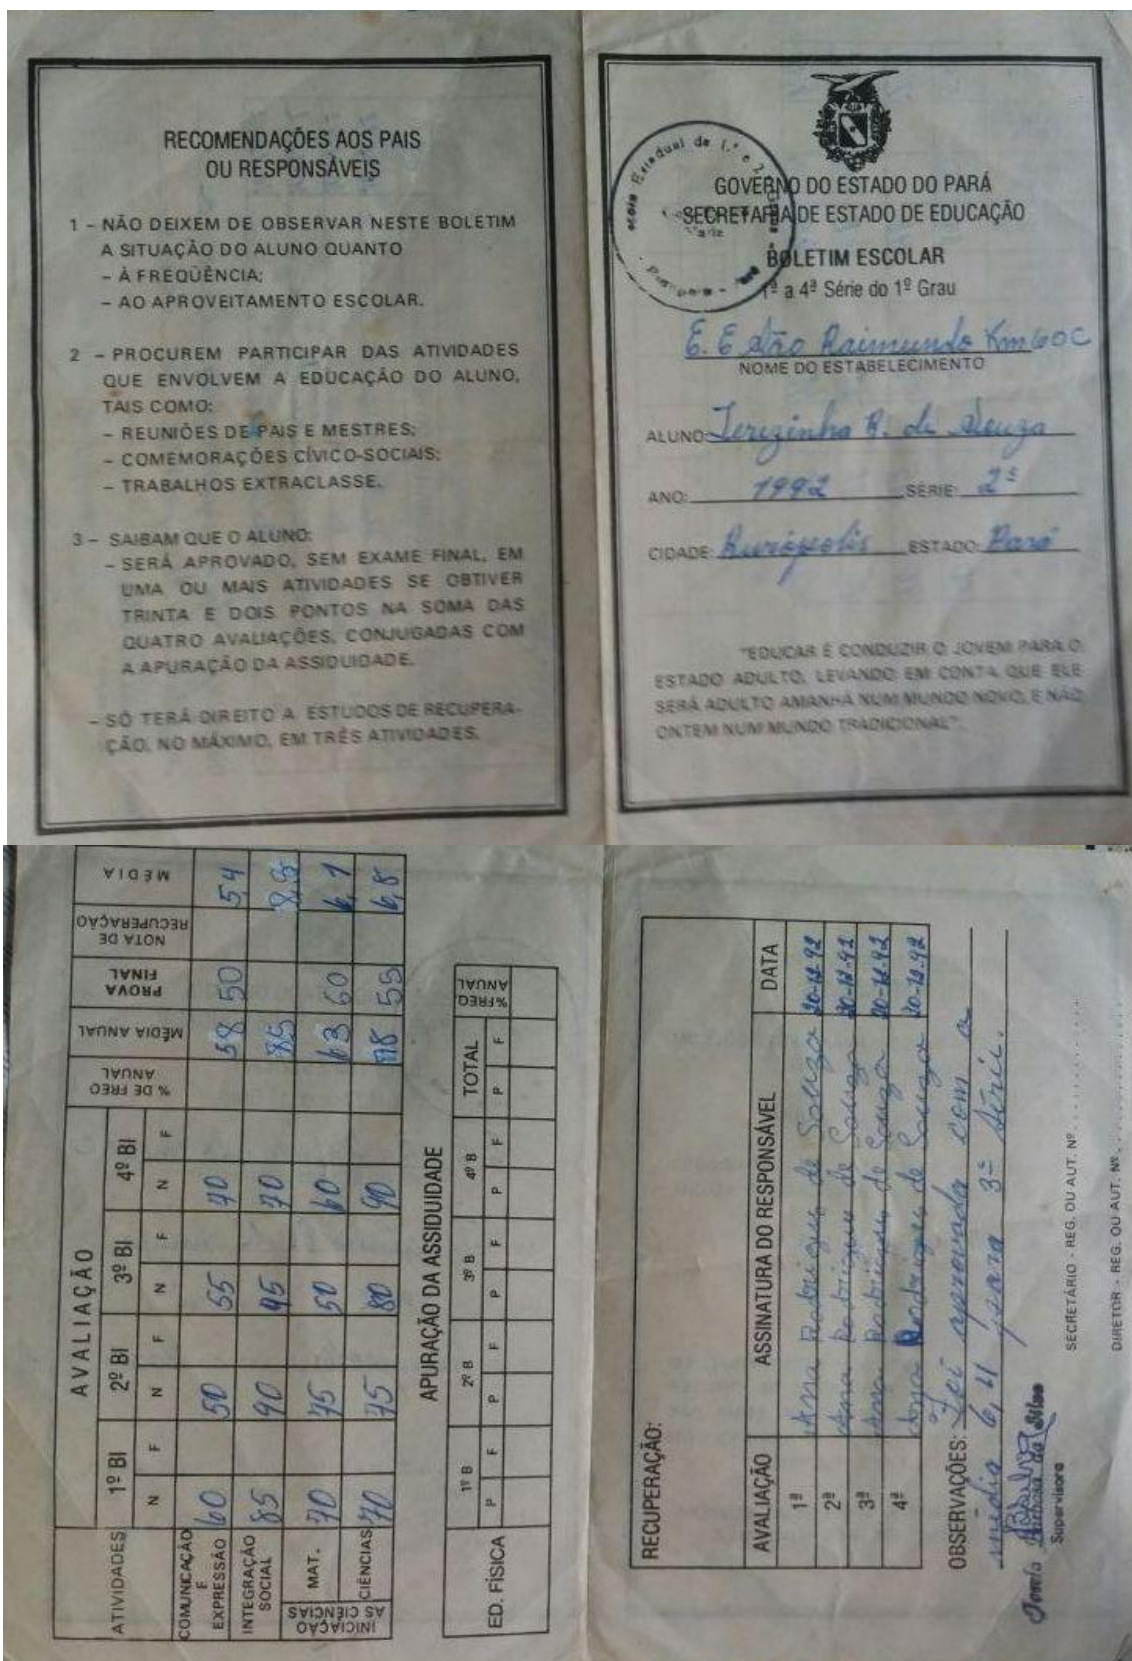 RECOMENDAÇÕES AOS PAIS
OU RESPONSÁVEIS
1 - NÃO DEIXEM DE OBSERVAR NESTE BOLETIM
A SITUAÇÃO DO ALUNO QUANTO
- À FREQÜÊNCIA;
- AO APROVEITAMENTO ESCOLAR.
2 - PROCUREM PARTICIPAR DAS ATIVIDADES
QUE ENVOLVEM A EDUCAÇÃO DO ALUNO,
TAIS COMO:
- REUNIÕES DE PAIS E MESTRES;
- COMEMORAÇÕES CÍVICO-SOCIAIS;
- TRABALHOS EXTRACLASSE.
3 - SAIBAM QUE O ALUNO:
- SERÁ APROVADO, SEM EXAME FINAL, EM
UMA OU MAIS ATIVIDADES SE OBTIVER
TRINTA E DOIS PONTOS NA SOMA DAS
QUATRO AVALIAÇÕES, CONJUGADAS COM
A APURAÇÃO DA ASSIDUIDADE.
- SÓ TERÁ DIREITO A ESTUDOS DE RECUPERA-
ÇÃO, NO MÁXIMO, EM TRÊS ATIVIDADES.
Estadual de 1.º e 2.
GOVERNO DO ESTADO DO PARÁ
SECRETARIA DE ESTADO DE EDUCAÇÃO
BOLETIM ESCOLAR
1ª a 4ª Série do 1º Grau
E. E São Raimundo Km 60C
NOME DO ESTABELECIMENTO
ALUNO: Terezinha R. de Souza
ANO: 1992 SÉRIE: 2ª
CIDADE: Rurópolis ESTADO: Pará
"EDUCAR É CONDUZIR O JOVEM PARA O
ESTADO ADULTO, LEVANDO EM CONTA QUE ELE
SERÁ ADULTO AMANHÃ NUM MUNDO NOVO, E NÃO
ONTEM NUM MUNDO TRADICIONAL".
ATIVIDADES AVALIAÇÃO % DE FREQ ANUAL MÉDIA ANUAL PROVA FINAL NOTA DE RECUPERAÇÃO MÉDIA
1º BI 2º BI 3º BI 4º BI
N F N F N F N F
COMUNICAÇÃO E EXPRESSÃO 60 50 55 70 58 50 5,4
INTEGRAÇÃO SOCIAL 85 90 95 70 85 8,5
INICIAÇÃO AS CIÊNCIAS
MAT. 70 75 50 60 63 60 6,1
CIÊNCIAS 70 75 80 90 78 55 6,8
APURAÇÃO DA ASSIDUIDADE
ED. FÍSICA 1º B 2º B 3º B 4º B TOTAL %FREQ. ANUAL
P F P F P F P F P F
RECUPERAÇÃO:
AVALIAÇÃO ASSINATURA DO RESPONSÁVEL DATA
1ª Ana Rodrigues de Souza 20-12-92
2ª Ana Rodrigues de Souza 20-12-92
3ª Ana Rodrigues de Souza 20-12-92
4ª Ana Rodrigues de Souza 20-12-92
OBSERVAÇÕES: Foi aprovada com a
media 6,4 para 3ª Série.
Barbosa da Silva
Supervisora
SECRETÁRIO - REG. OU AUT. Nº
DIRETOR - REG. OU AUT. Nº